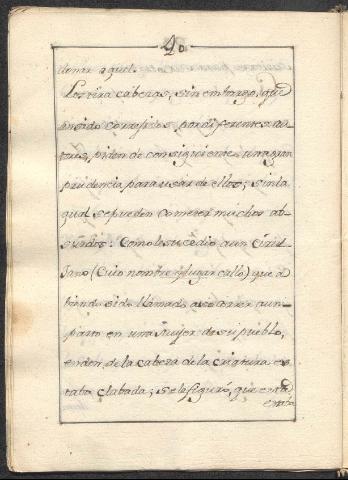 40
llenir aquel.
Los tira cabezas, sin embargo, que
han sido corregidos por diferentes au-
tores, piden de consiguiente una gran
prudencia para usar de ellos; sin la
qual se pueden cometer muchos ab-
surdos: Como le sucedio a un Ciruj-
jano (Cuio nombre y lugar callo) que a
biendo sido llamado a socorrer a un
parto en una Mujer de su pueblo,
en don de la cabeza de la criatura es
taba clabada; se le figuró, que esta